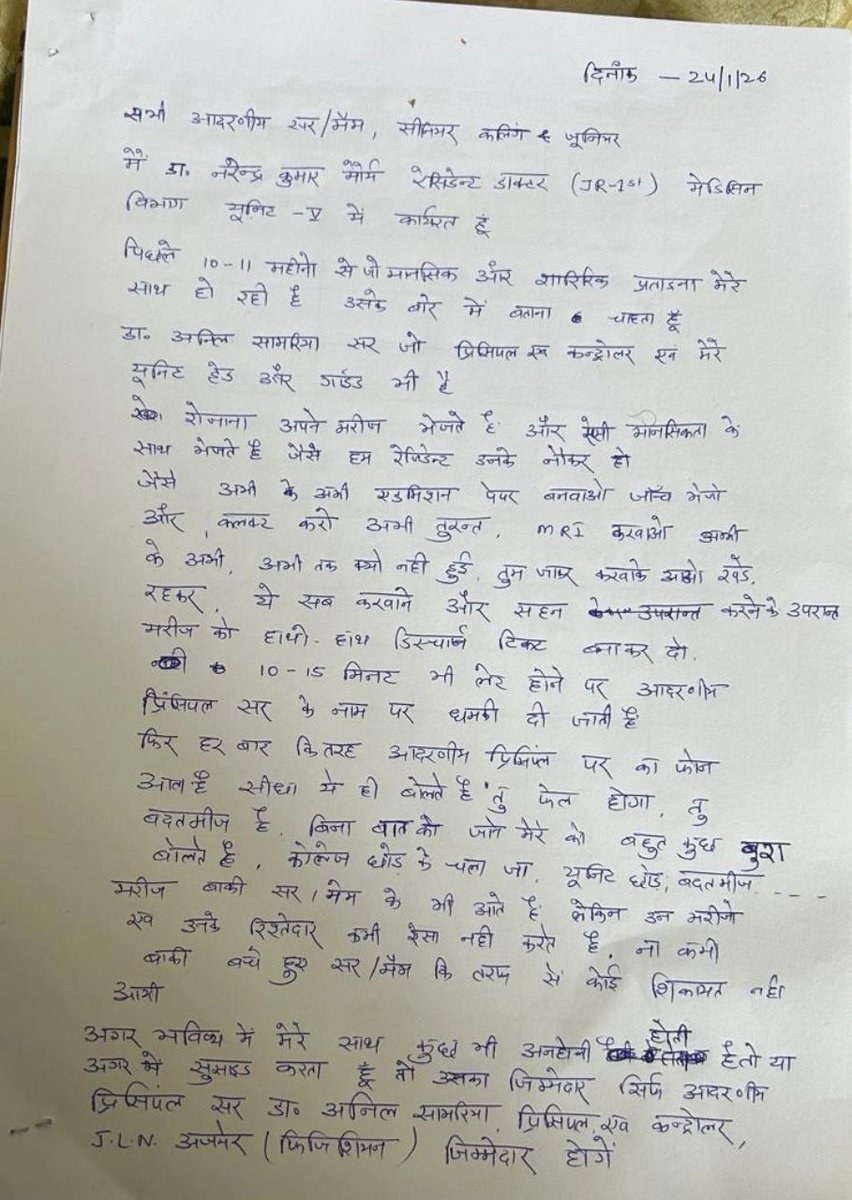 दिनाँक - 24/1/26
सभी आदरणीय सर/मैम, सीनियर कलिग & जूनियर
में डा. नरेन्द्र कुमार मौर्य रेसिडेन्ट डाक्टर (JR-1st) मेडिसिन
विभाग यूनिट -V में कार्यरत हूं
पिछले 10-11 महीनो से जो मानसिक और शारिरिक प्रताडना मेरे
साथ हो रही है उसके बारे में बताना चाहता हूँ
डा. अनिल सामरिया सर जो प्रिंसिपल एव कन्ट्रोलर एवं मेरे
यूनिट हेड और गाईड भी है
रोजाना अपने मरीज भेजते है और ऐसी मानसिकता के
साथ भेजते है जैसे हम रेजिडेन्ट उनके नौकर हो
जैसे अभी के अभी एडमिशन पेपर बनवाओ जाँच भेजो
और, कलक्ट करो अभी तुरन्त, MRI करवाओ अभी
के अभी, अभी तक क्यो नही हुई, तुम जाकर करवाके आओ खडे
रहकर, ये सब करवाने और सहन करने के उपरान्त
मरीज को हाथो-हाथ डिस्चार्ज टिकट बनाकर दो.
10-15 मिनट भी लेट होने पर आदरणीय
प्रिंसिपल सर के नाम पर धमकी दी जाती है
फिर हर बार कि तरह आदरणीय प्रिंसिपल सर का फोन
आता है सीधा ये ही बोलते है "तु फेल होगा, तु
बदतमीज है, बिना बात को जाने मेरे को बहुत कुछ बुरा
बोलते है, कोलेज छोड के चला जा, यूनिट छोड, बदतमीज....
मरीज बाकी सर/मेम के भी आते है लेकिन उन मरीजो
एव उनके रिश्तेदार कभी ऐसा नही करते है, ना कभी
बाकी बचे हुए सर/मैम कि तरफ से कोई शिकायत नही
आयी
अगर भविष्य में मेरे साथ कुछ भी अनहोनी होती है तो या
अगर में सुसाइड करता हूँ तो उसका जिम्मेदार सिर्फ आदरणीय
प्रिंसिपल सर डा. अनिल सामरिया, प्रिंसिपल एव कन्ट्रोलर,
J.L.N. अजमेर (फिजिशियन) जिम्मेदार होगें